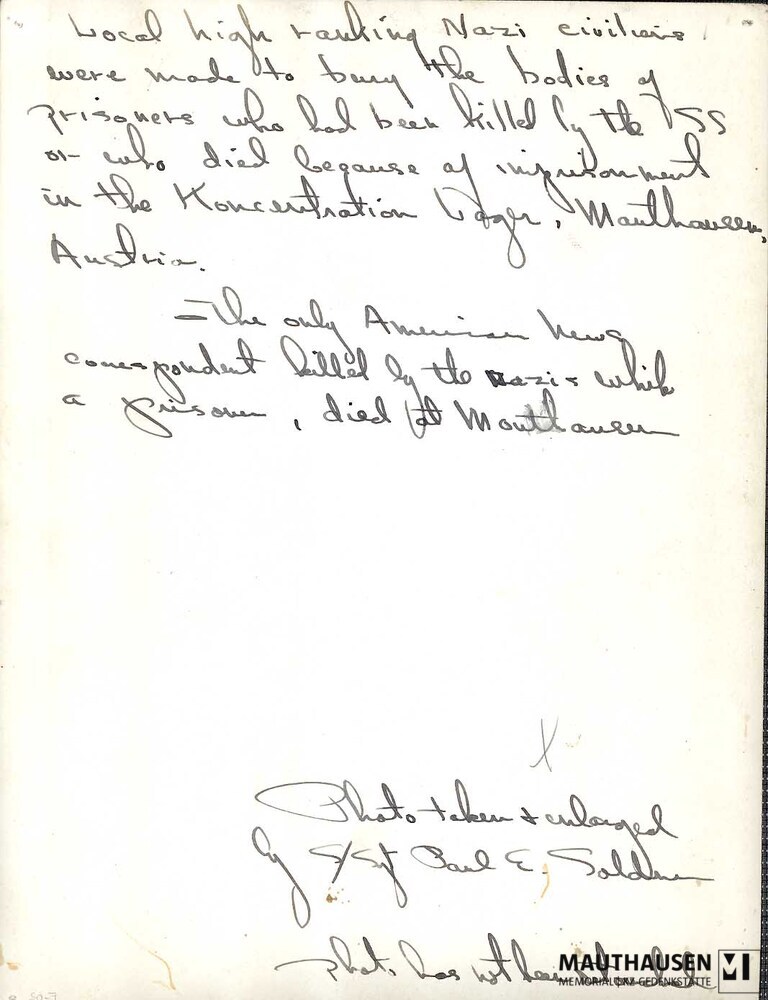 Local high ranking Nazi civilians
were made to bury the bodies of
prisoners who had been killed by the SS
or who died because of imprisonment
in the Koncentration Lager, Mauthausen,
Austria.
- The only American News
correspondent killed by the nazis while
a prisoner, died at Mauthausen
Photo taken + enlarged
by S/Sgt Paul E. Soldner
Photo has not been
MAUTHAUSEN
MEMORIAL | KZ-GEDENKSTÄTTE